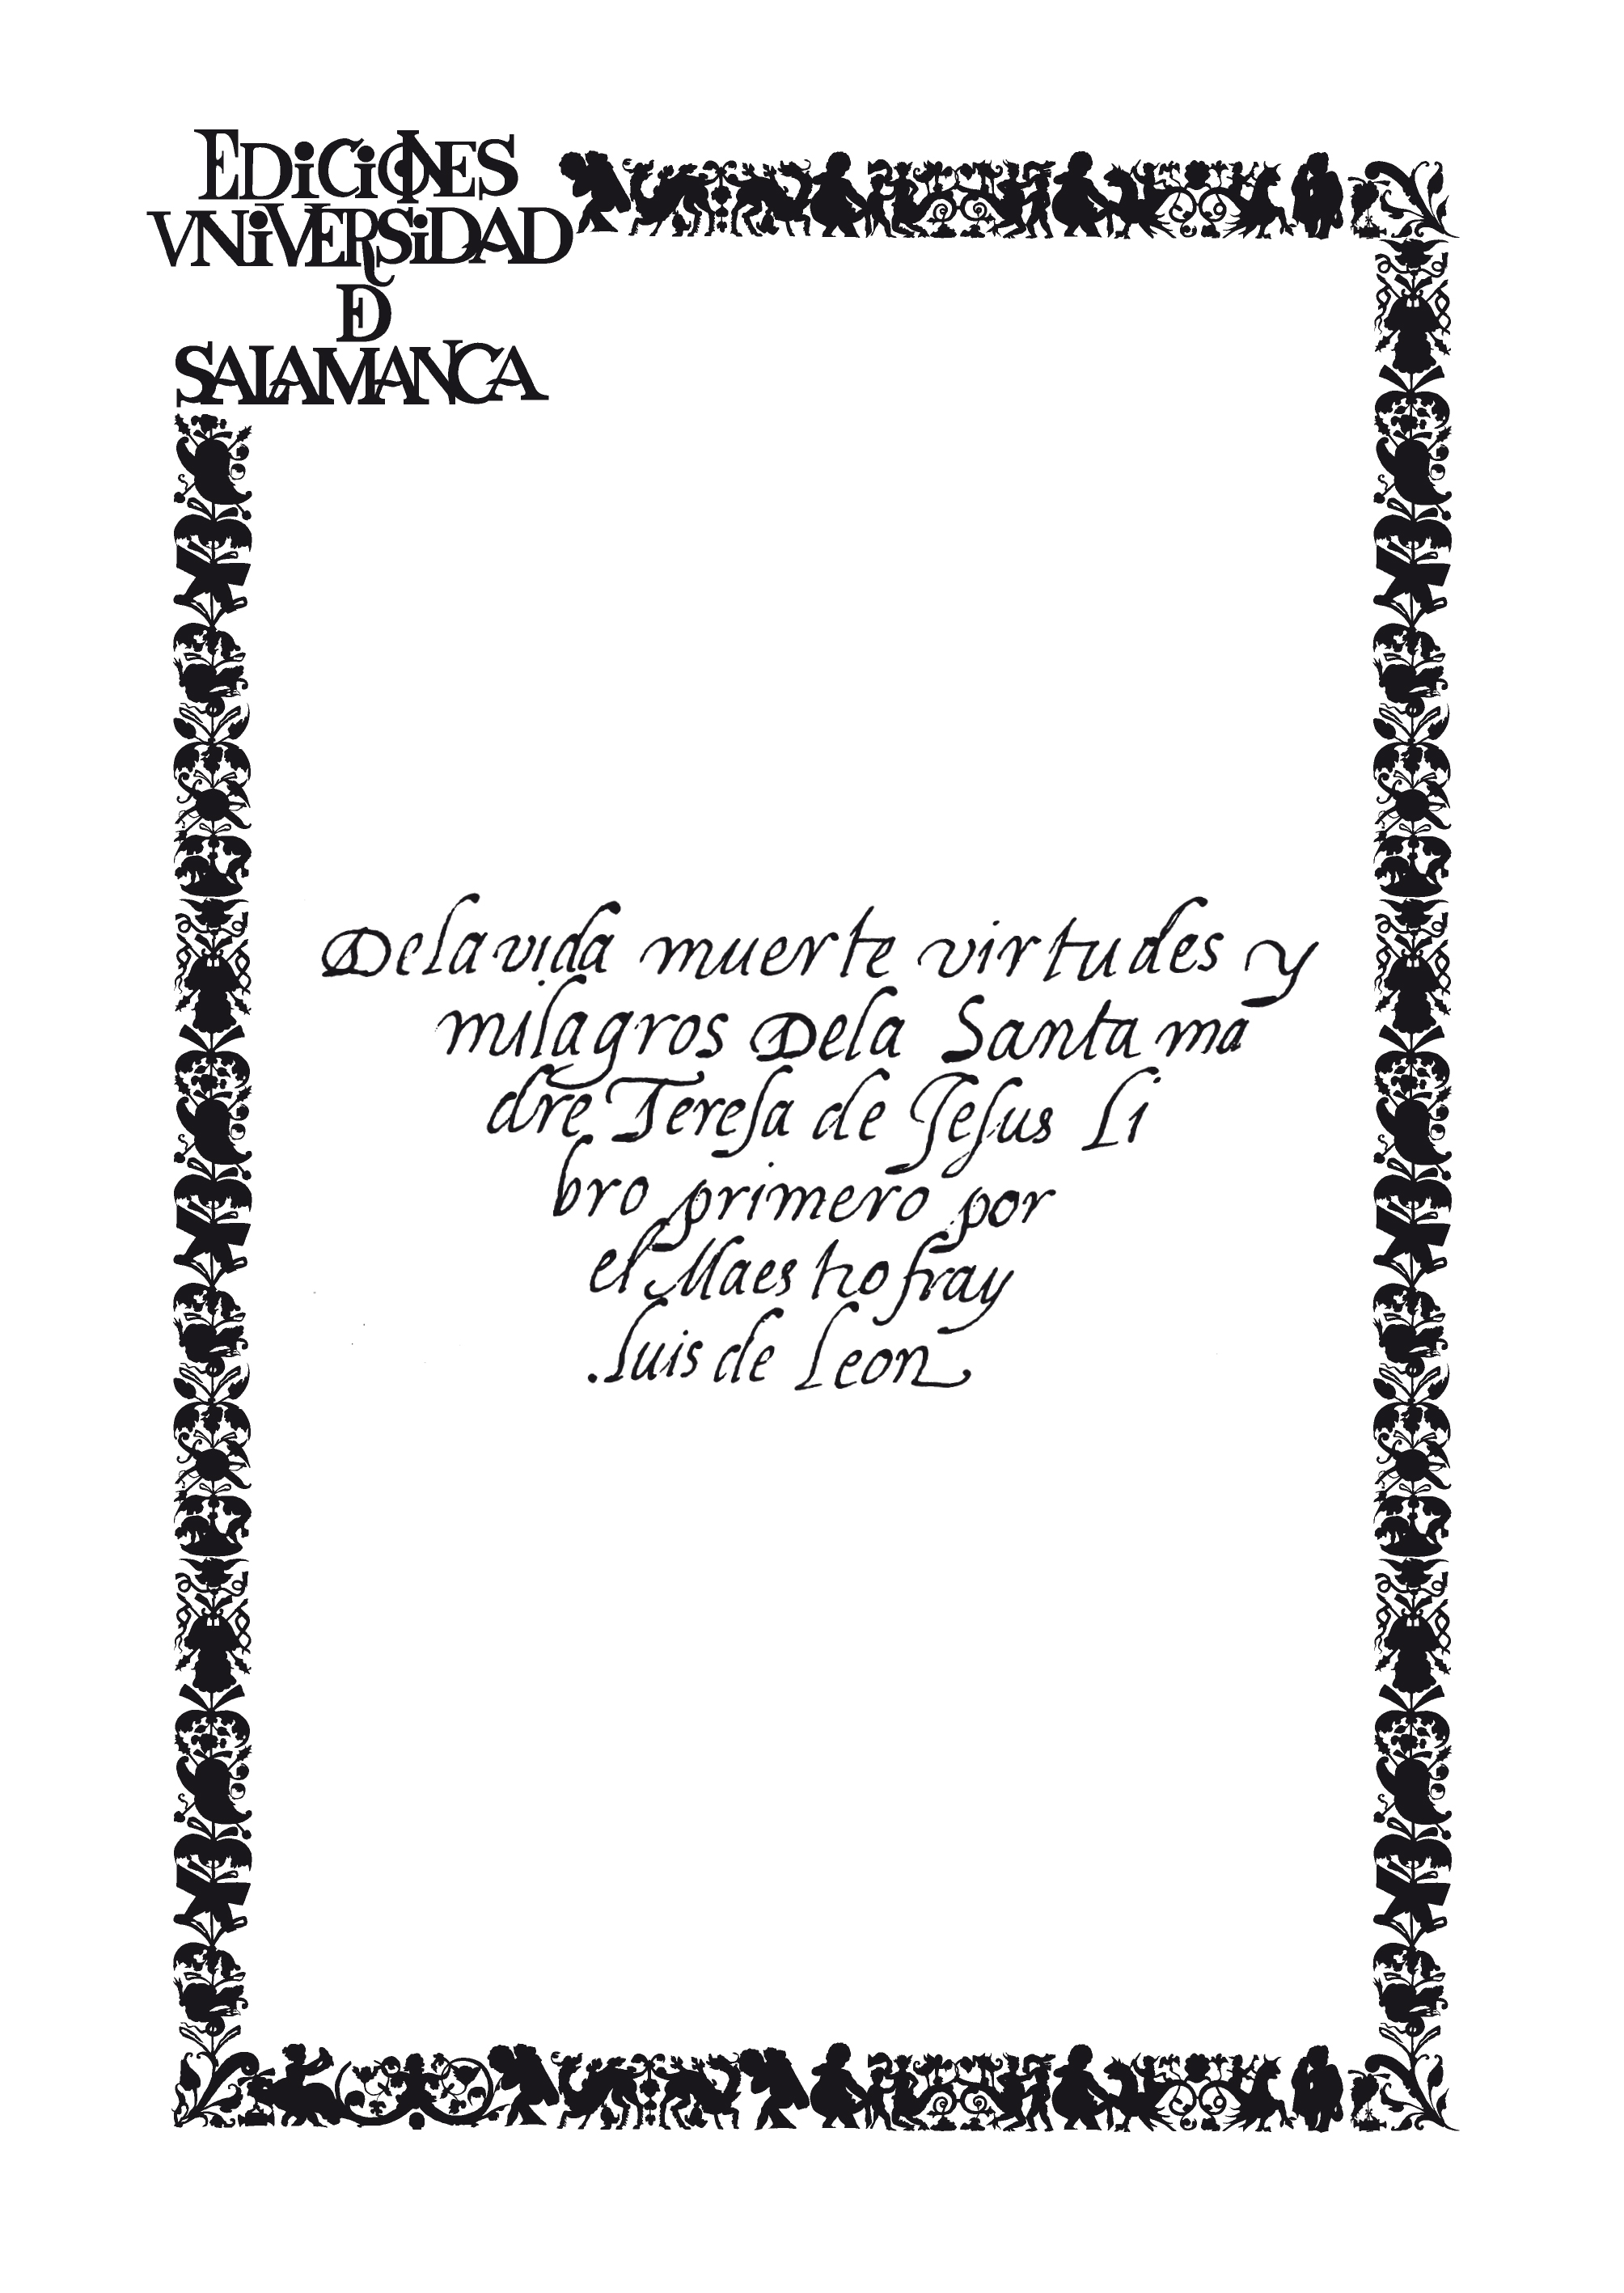 EDiCiONES
VNiVERSiDAD
DE
SALAMANCA
De la vida muerte virtudes y
milagros De la Santa ma
dre Teresa de Jesus Li
bro primero por
el Maestro fray
.luis de Leon